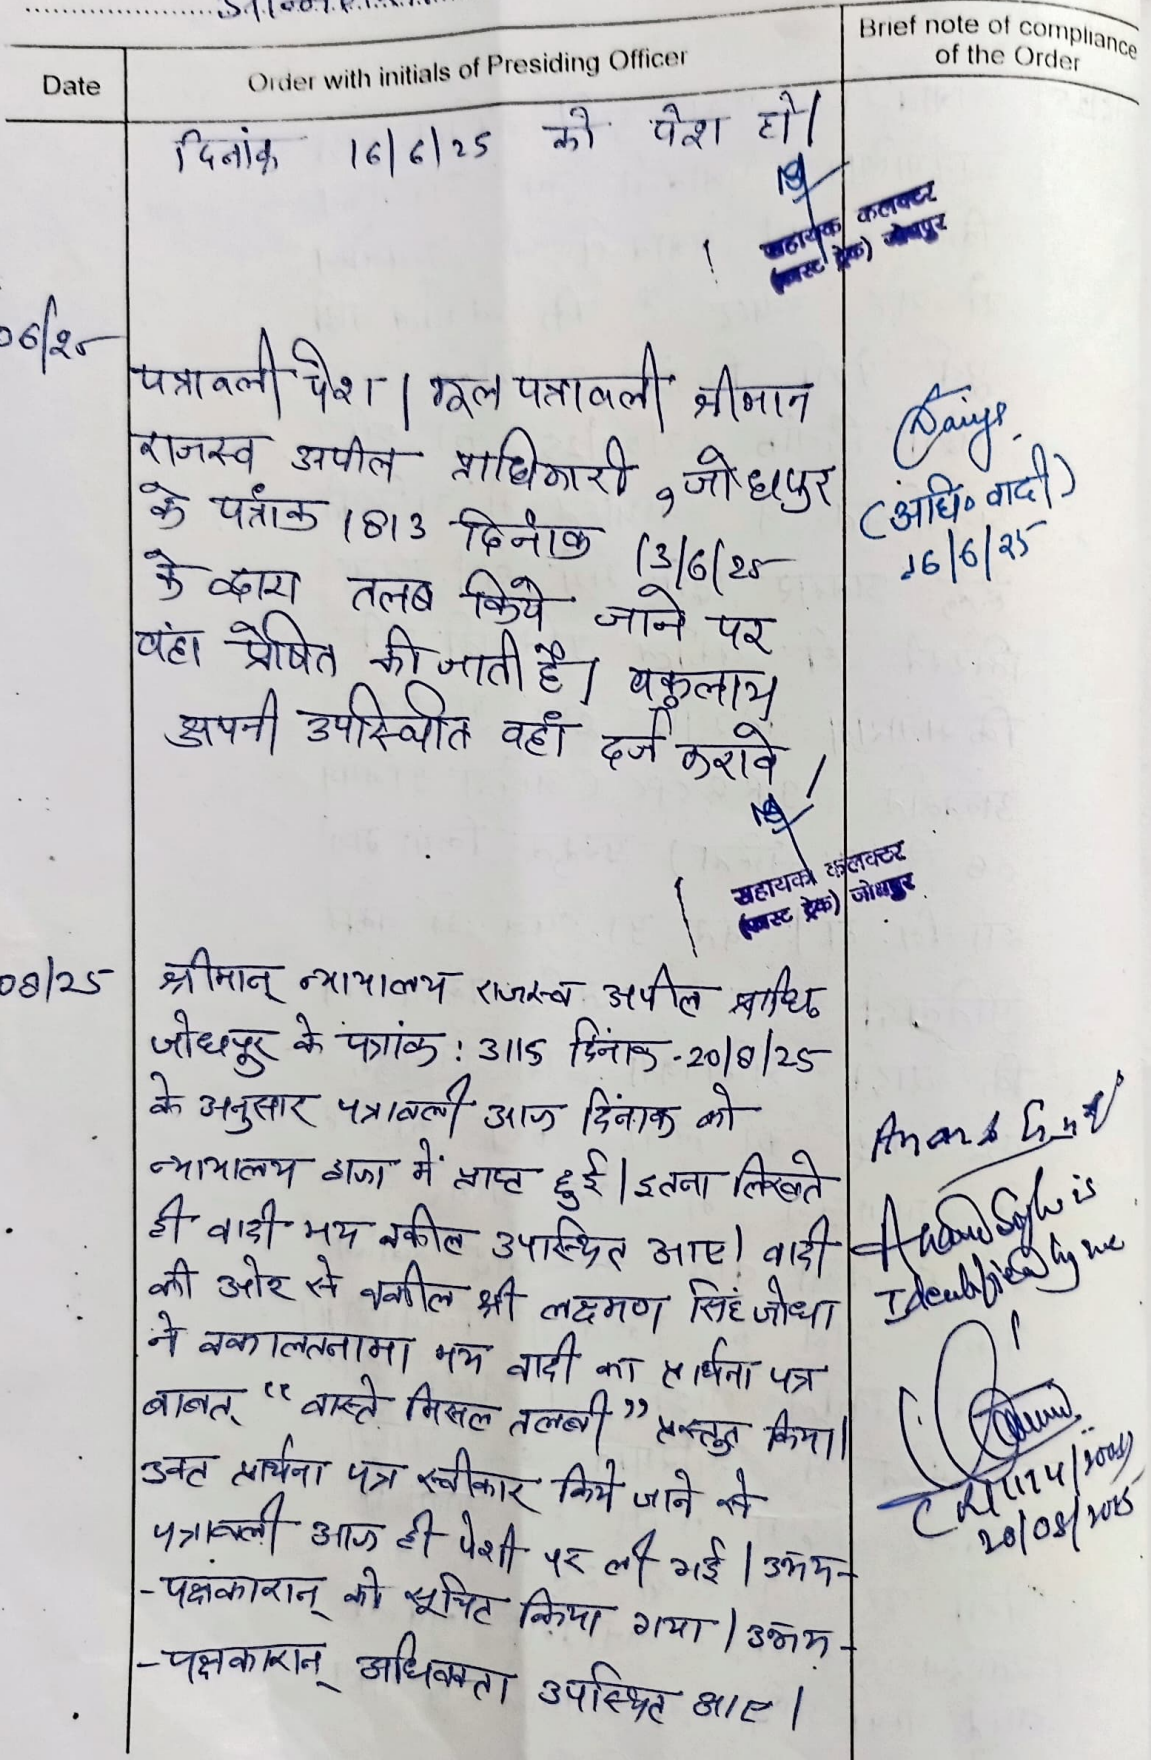 Date
Order with initials of Presiding Officer
Brief note of compliance
of the Order
दिनांक 16/6/25 को पेश हो।
सहायक कलक्टर
(फास्ट ट्रेक) जोधपुर
06/25
पत्रावली पेश। मूल पत्रावली श्रीमान
राजस्व अपील प्राधिकारी, जोधपुर
के पत्रांक 1813 दिनांक 13/6/25
के द्वारा तलब किये जाने पर
वहा प्रेषित की जाती है। वकुलाय
अपनी उपस्थिति वहाँ दर्ज करावे।
(अधि० वादी)
16/6/25
सहायक कलक्टर
(फास्ट ट्रेक) जोधपुर
08/25
श्रीमान् न्यायालय राजस्व अपील प्राधि
जोधपुर के पत्रांक: 3115 दिनांक-20/8/25
के अनुसार पत्रावली आज दिनांक को
न्यायालय हाजा में प्राप्त हुई। इतना लिखते
ही वादी मय वकील उपस्थित आए। वादी
की ओर से वकील श्री लक्ष्मण सिंह जोधा
ने वकालतनामा मय वादी का प्रार्थना पत्र
बाबत् "वास्ते मिसल तलबी" प्रस्तुत किया।
उक्त प्रार्थना पत्र स्वीकार किये जाने से
पत्रावली आज ही पेशी पर ली गई। उभय-
-पक्षकारान् को सूचित किया गया। उभय-
-पक्षकारान् अधिवक्ता उपस्थित आए।
Anand Singh is
Identified by me
20/08/2025